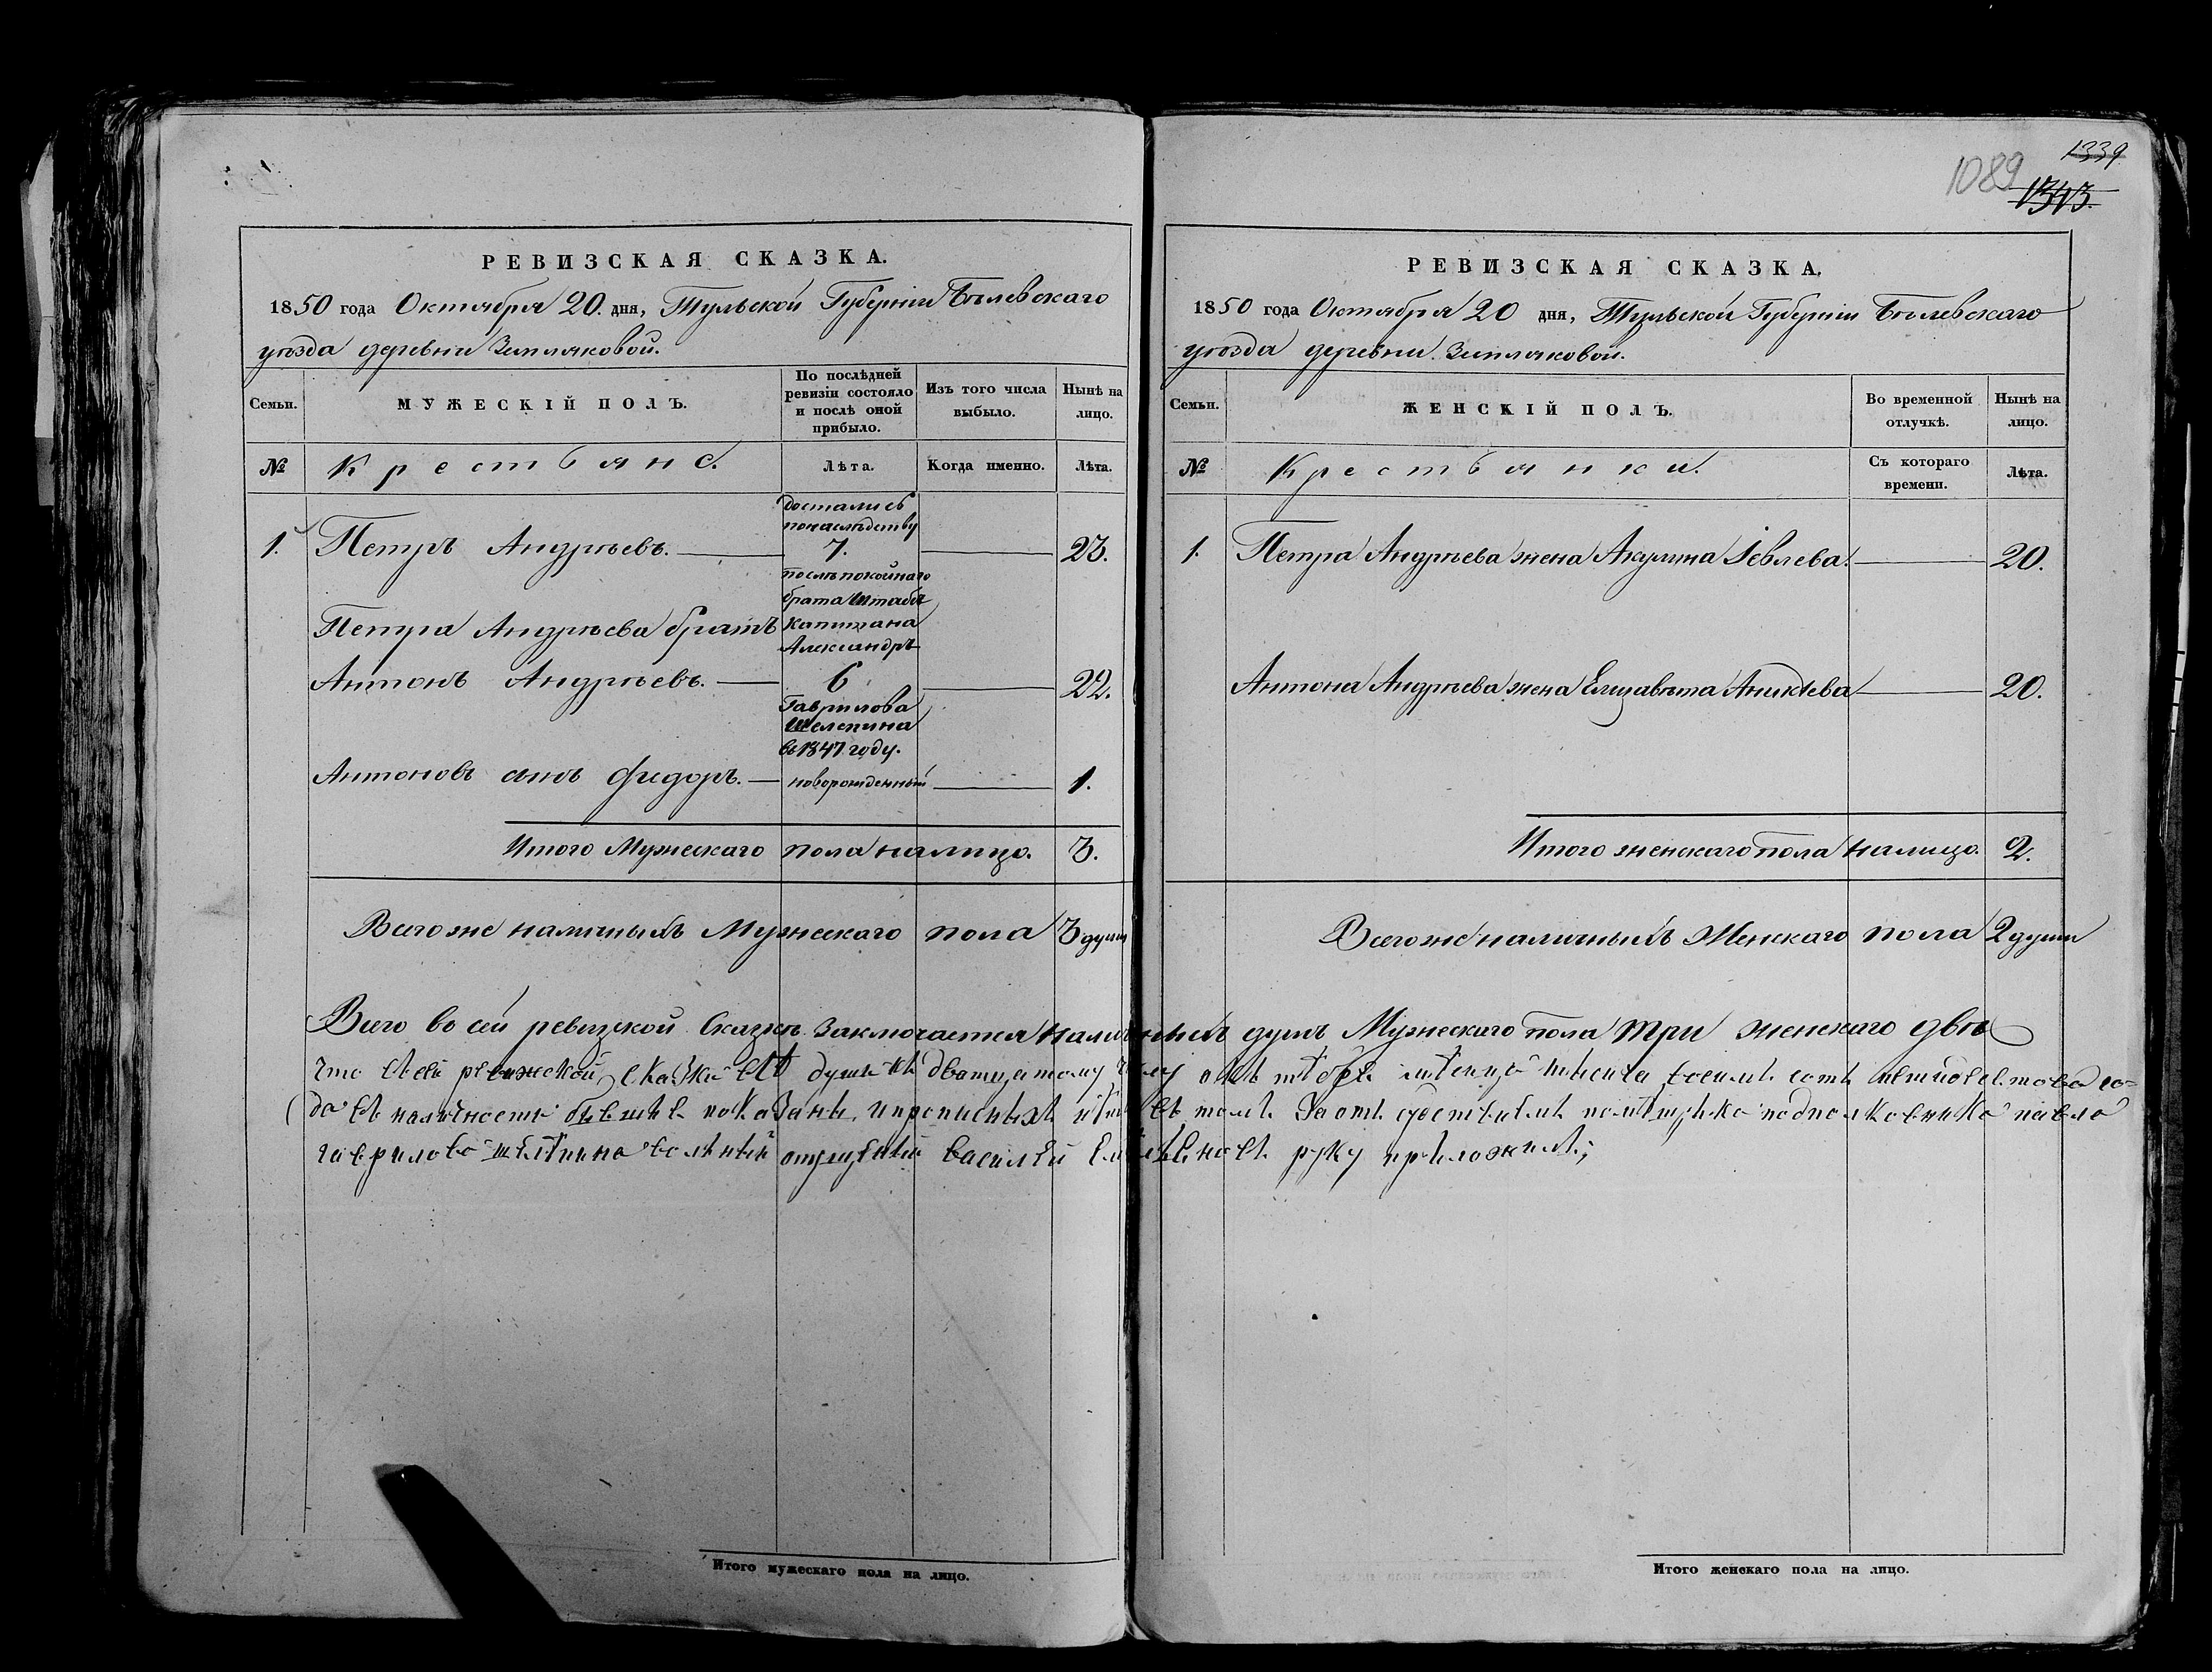 1339
1089 1343.
РЕВИЗСКАЯ СКАЗКА.
1850 года Октября 20. дня, Тульской Губерніи Бѣлевскаго
уѣзда деревни Земляковой.
Семьи.
МУЖЕСКІЙ ПОЛЪ.
По послѣдней ревизіи состояло и послѣ оной прибыло.
Изъ того числа выбыло.
Нынѣ на лицо.
№
Крестьяне.
Лѣта.
Когда именно.
Лѣта.
достались
понаслѣдству
1. Петръ Андрѣевъ. 7. 23.
послѣ покойнаго
брата штабсъ
Петра Андрѣева братъ капитана
Александръ
Антонъ Андрѣевъ. 6 22.
Гаврилова
Шелепина
въ 1847 году.
Антоновъ сынъ Федоръ. новорожденный 1.
Итого Мужескаго пола налицо. 3.
Всего же наличныхъ Мужескаго пола 3 души
РЕВИЗСКАЯ СКАЗКА.
1850 года Октября 20 дня, Тульской Губерніи Бѣлевскаго
уѣзда деревни Земляковой.
Семьи.
ЖЕНСКІЙ ПОЛЪ.
Во временной отлучкѣ.
Нынѣ на лицо.
№
Крестьянки.
Съ котораго времени.
Лѣта.
1. Петра Андрѣева жена Акулина Іевлева. 20.
Антона Андрѣева жена Елизавѣта Аникѣева 20.
Итого женскаго пола налицо. 2.
Всего же наличныхъ Женскаго пола 2 души
Всего во сей ревизской Сказкѣ Заключается наличныхъ душъ Мужескаго пола три женскаго двѣ
что всей ревжской скаски всѣ души кѣ дватцатому числу октебре тысича восимъ сотъ
да въ наличности бывшие показаны, и прописныхъ нѣтъ въ томъ Заотъ помѣщика подполковника павла
гаврилова шелѣпина волный отпущеный василей руку приложилъ;
Итого мужескаго пола на лицо.
Итого женскаго пола на лицо.